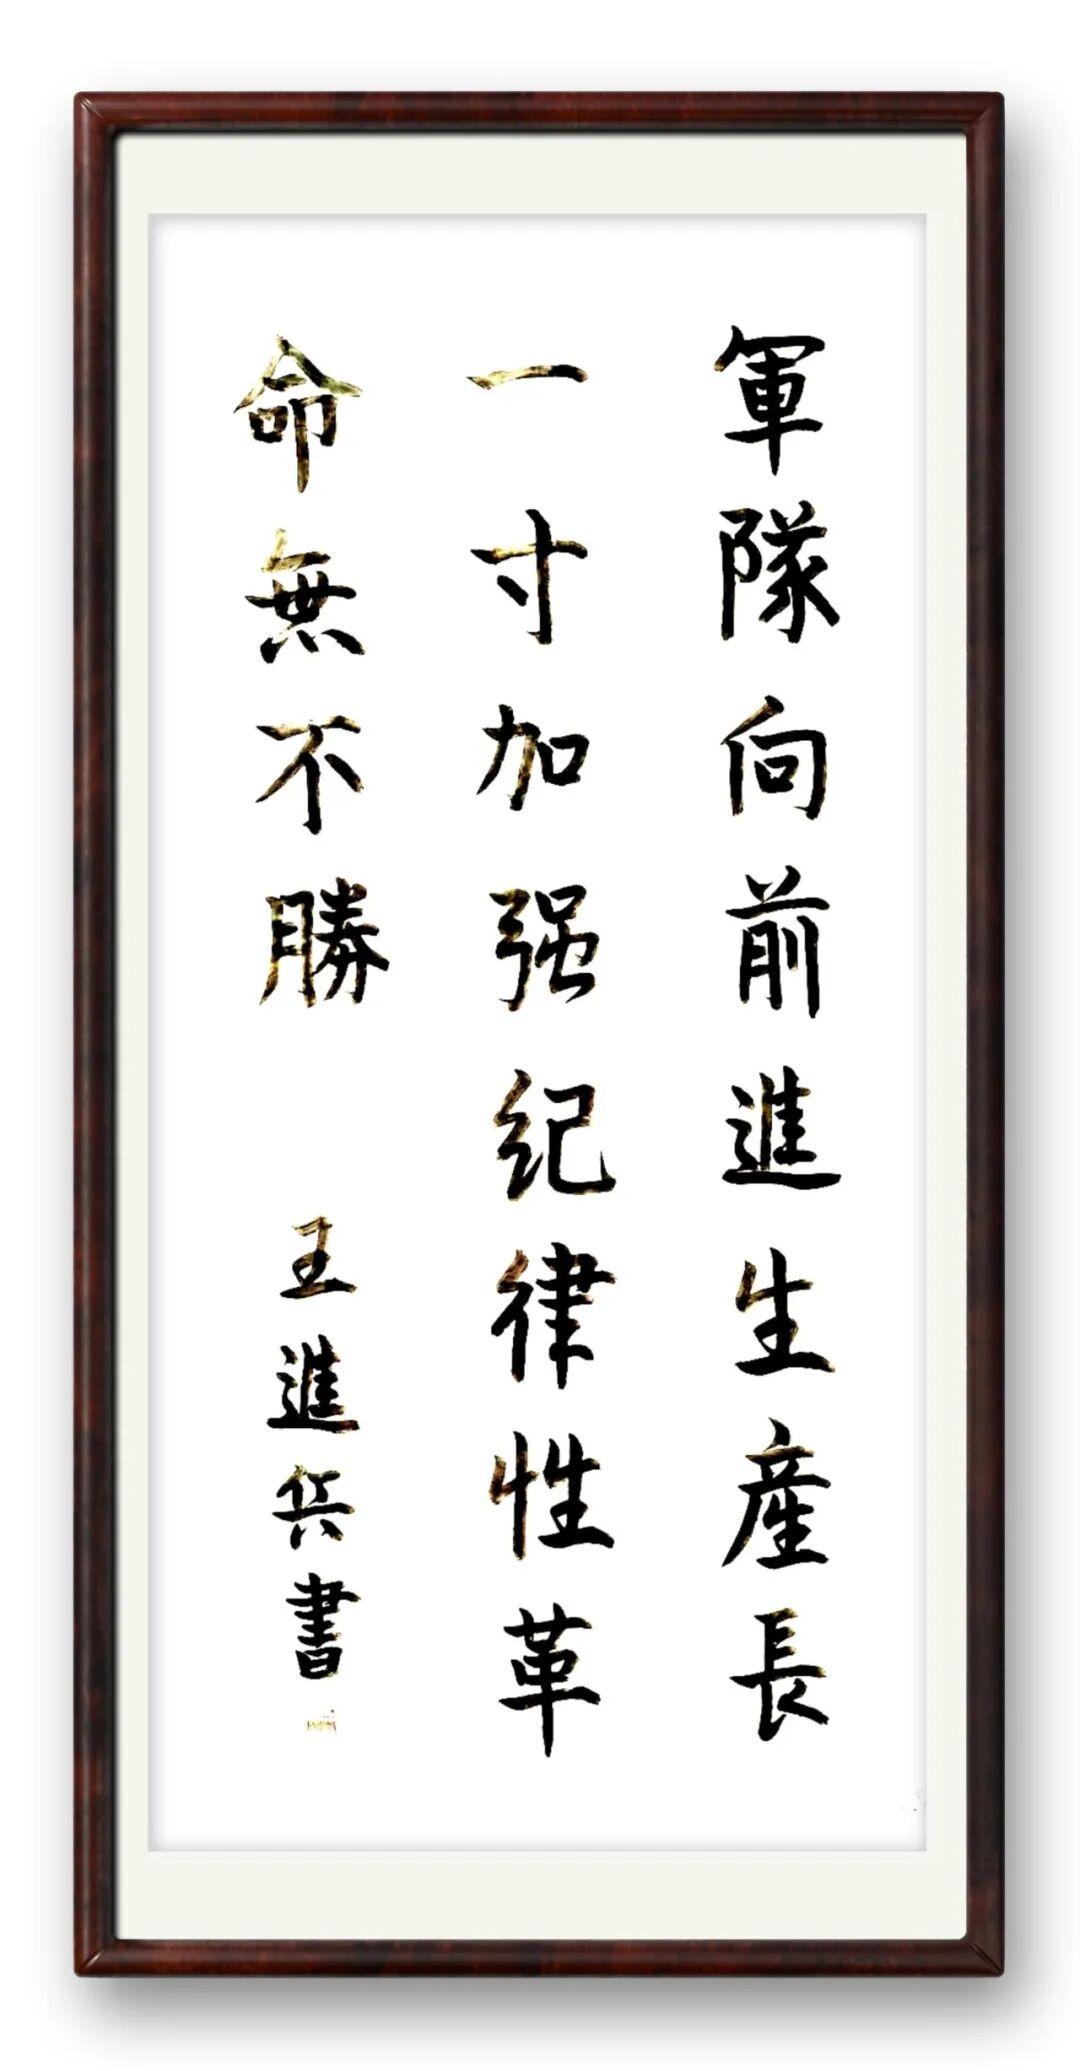 軍隊向前進生産長
一寸加强纪律性革
命無不勝
王進兵書